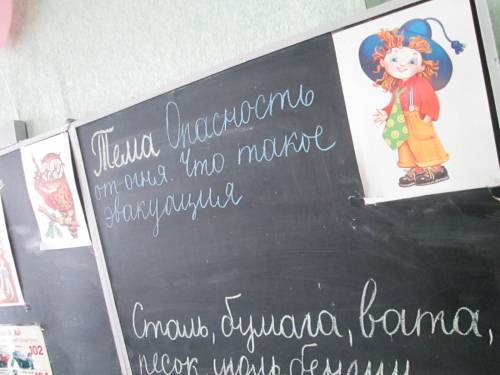 Тема Опасность
от огня. Что такое
эвакуация
Сталь, бумага, вата,
песок, шоль, бензин
102